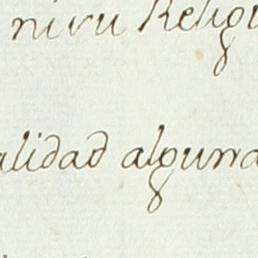 ni su Religi
alidad alguna